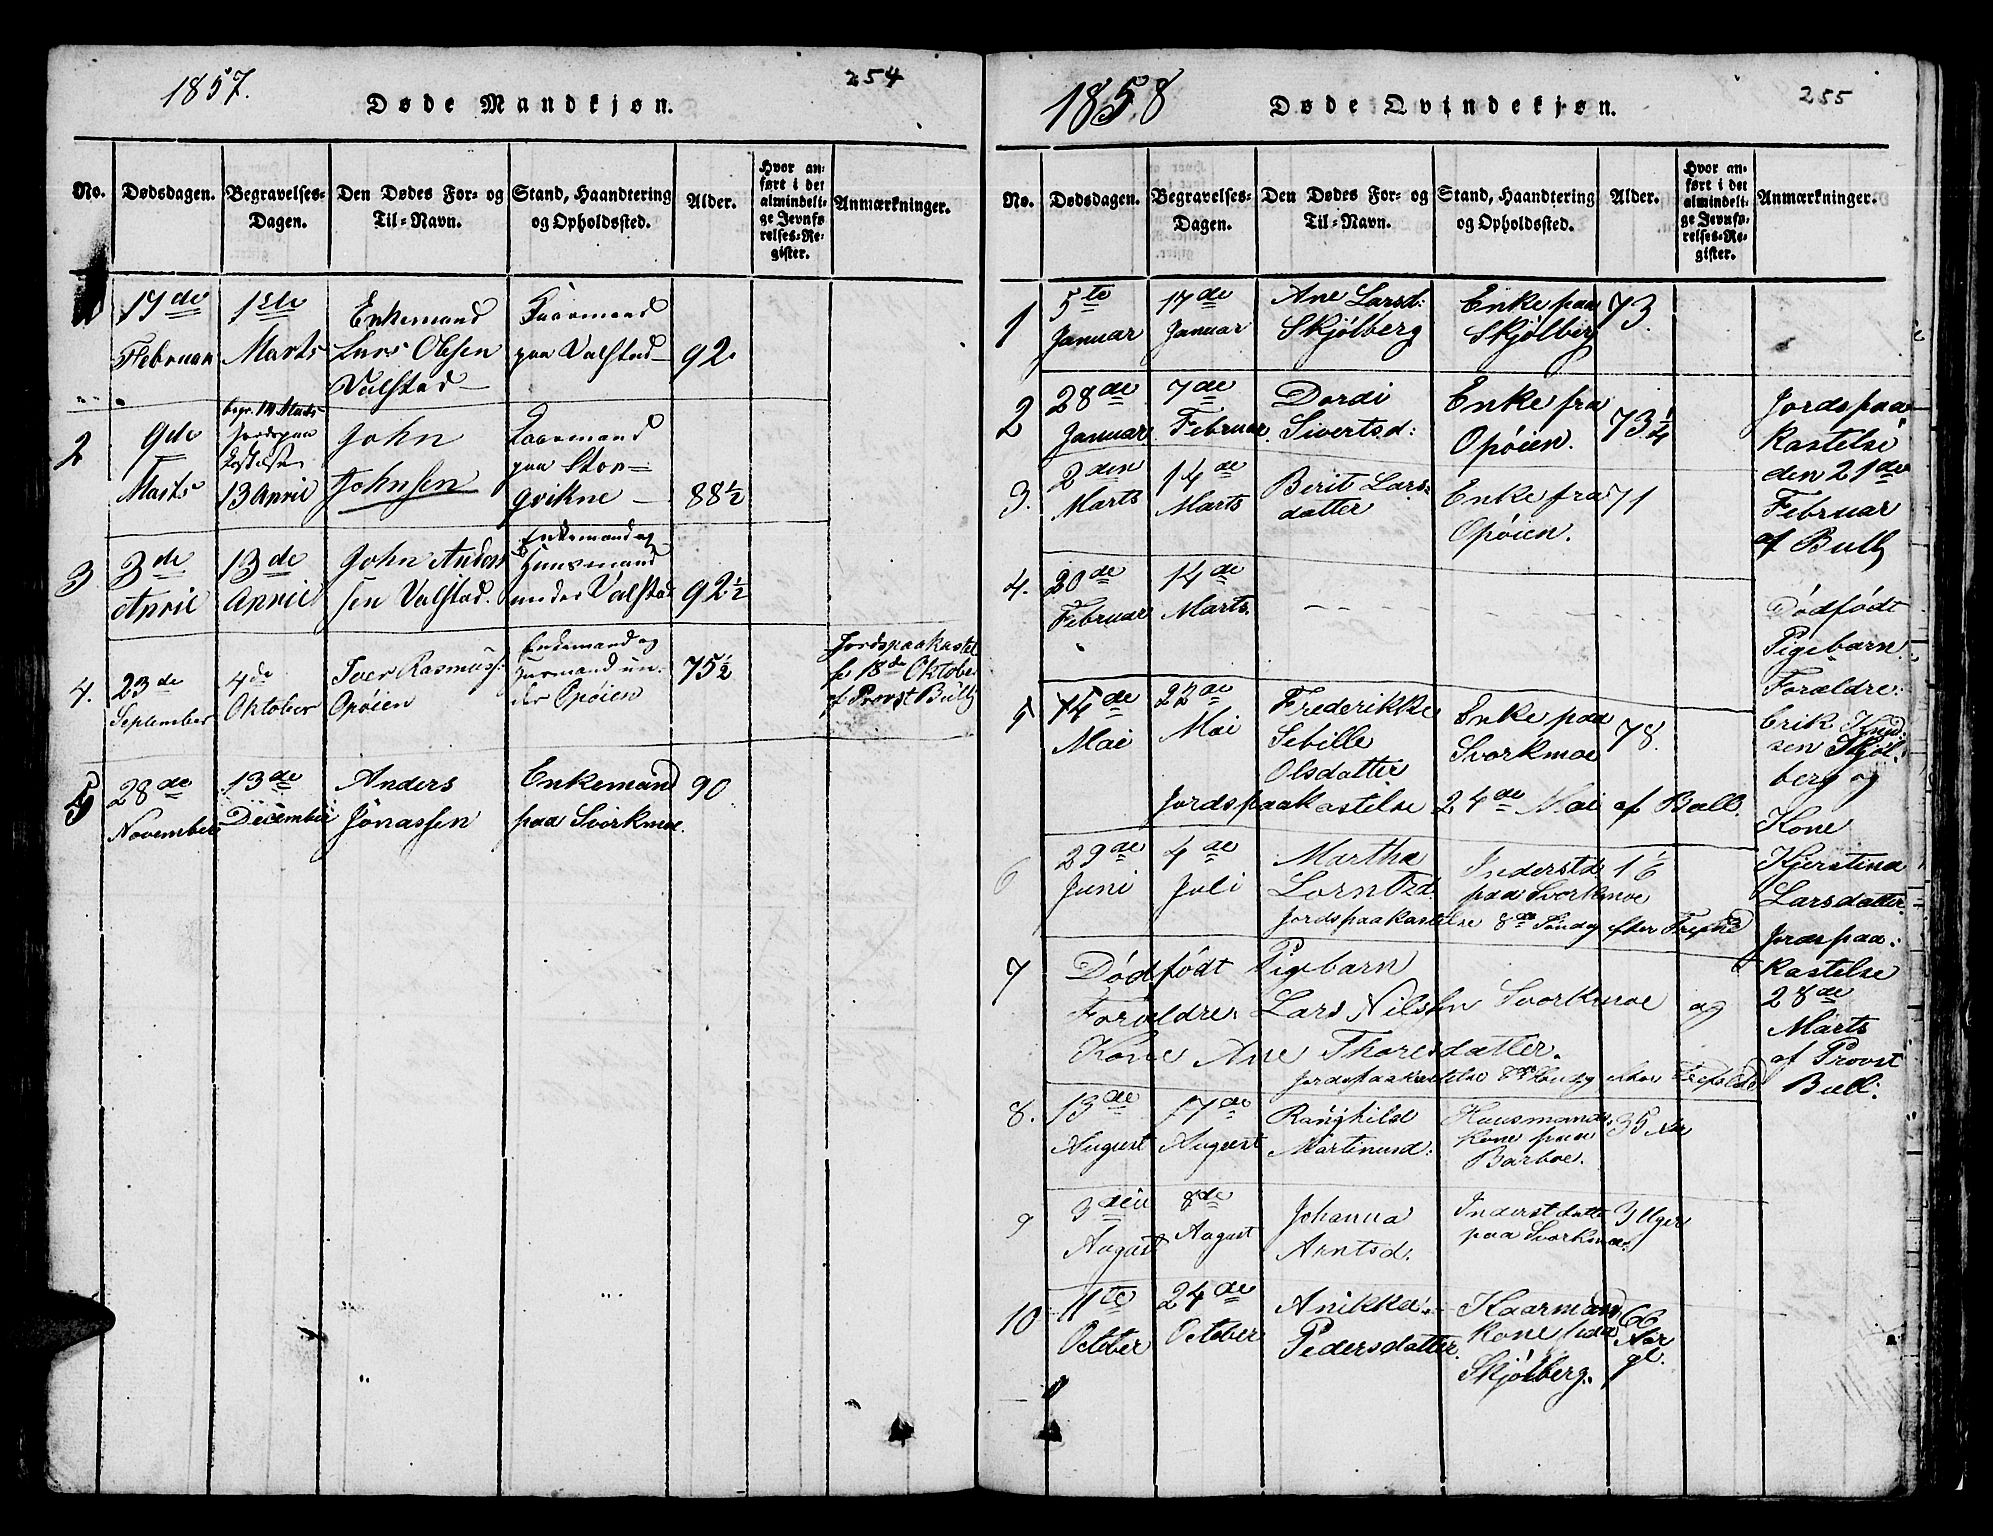 1857.
254
Døde Mandkjøn.
No.
Dødsdagen.
Begravelses-
Dagen.
Den Dødes For- og
Til-Navn.
Stand, Haandtering
og Opholdssted.
Alder.
Hvor an-
ført i det
almindeli-
ge Jevnfø-
relses-Re-
gister.
Anmærkninger.
17de
Februar
1ste
Marts
Enkemand
Lars Olesen
Valstad
paa Valstad
92.
2
9de
Marts
begr. 14 Marts
Jordspaa
13 April
John
Johnsen
paa Stor-
qvikne
88 1/2
3
3de
April
13de
April
John Anders
sen Valstad.
Enkemand og
Huusmand
under Valstad
92 1/2
4.
23de
September
4de
Oktober
Iver Rasmuss:
Opøien
un-
der Opøien
75 1/2
Jordspaakastel
18de Oktober
af Provst Bull
5
28de
November
13de
December
Anders
Jonassen
Enkemand
paa Svorkmoe.
90
1858
255
Døde Qvindekjøn.
No.
Dødsdagen.
Begravelses-
Dagen.
Den Dødes For- og
Til-Navn.
Stand, Haandtering
og Opholdssted.
Alder.
Hvor an-
ført i det
almindeli-
ge Jevnfø-
relses-Re-
gister.
Anmærkninger.
1
5te
Januar
17de
Januar
Ane Larsd:
Skjølberg
Enke paa
Skjølberg
73.
2
28de
Januar
7de
Februar
Dordi
Sivertsd:
Enke fra
Opøien.
73 1/4
Jordspaa
kastelse
den 21de
Februar
af Bull
3.
2den
Marts
14de
Marts
Berit Lars-
datter
Enke fra
Opøien.
71
4.
20de
Februar
14de
Marts.
Dødfødt
Pigebarn.
Forældre:
Erik Knud-
sen Skjøl-
berg og
Kone
Kjerstina
Larsdatter.
Jordspaa-
kastelse
28de
Marts
af Provst
Bull.
5
14de
Mai
22de
Mai
Frederikke
Sebille
Olsdatter
Enke paa
Svorkmoe
78.
Jordspaakastelse 24de Mai af Bull.
6
29de
Juni
4de
Juli
Martha
Inderstd
paa Svorkmoe
1 1/6
Jordspaakastelse 8de Søndag efter Trefold
7
Dødfødt Pigebarn
Forældre: Lars Nilsen Svorkmoe og
Kone Ane Thoresdatter.
Jordspaakastelse 8de Søndag efter Trefold
8.
13de
August
17de
August
Ranghild
Martinusd:
Huusmands
kone paa
Barboe.
35 Aar
9
3die
August
8de
August
Johanna
Arntsd.
Inderst datter
paa Svorkmoe.
3 Uger
10
11te
October
24de
October
Anikka
Pedersdatter
Kaarmand
kone paa
Skjølberg.
66
Aar
gl.